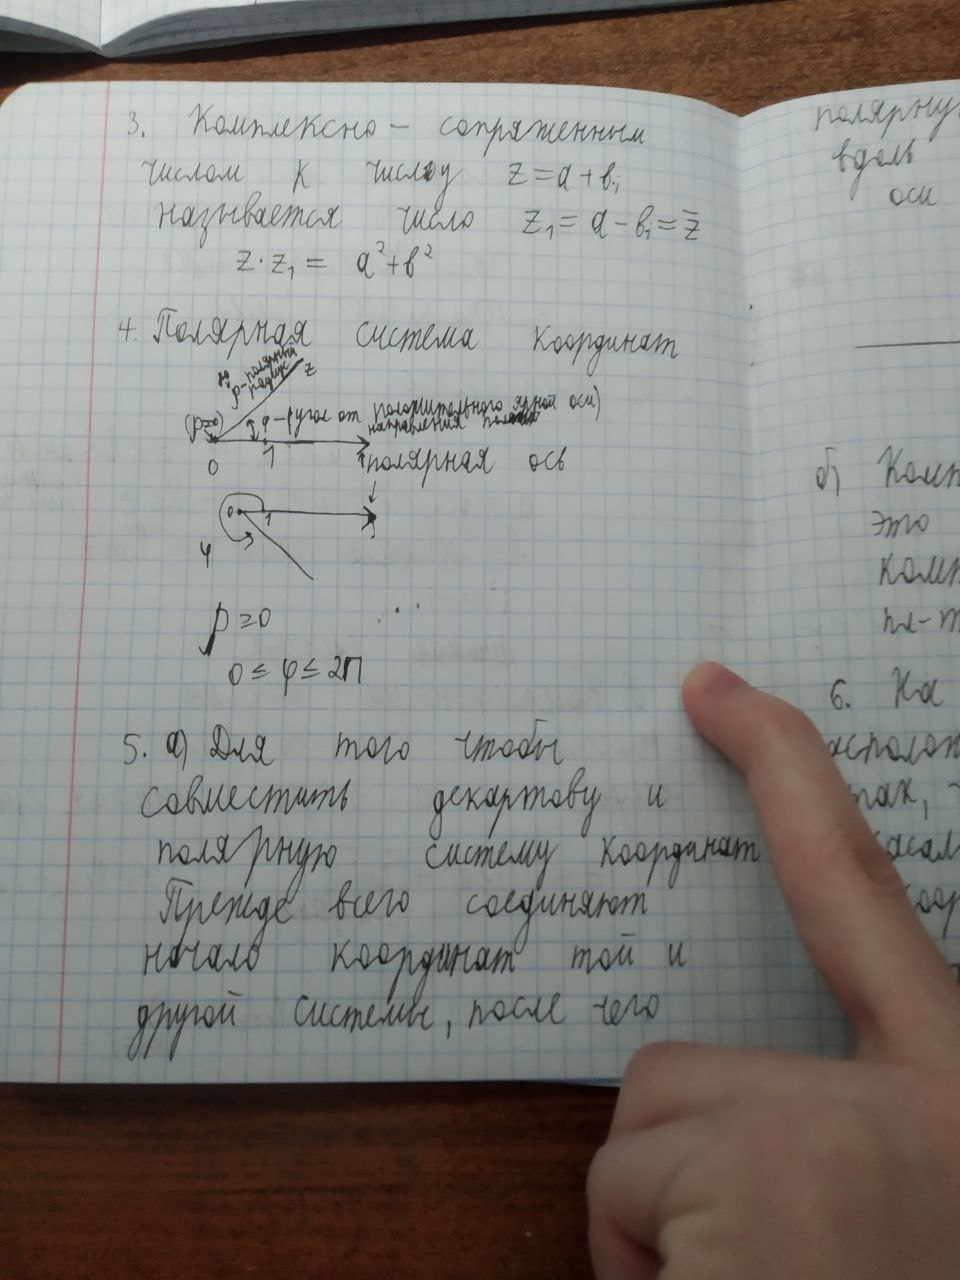 3. Комплексно - сопряженным
числом к числу z = a + bi
называется число z₁ = a - bi = z̄
z · z₁ = a² + b²
4. Полярная система координат
ρ - полярный
радиус
z
(ρ≥0)
φ - (угол от положительного
направления полярной оси)
0 1
полярная ось
0 1
φ
ρ ≥ 0
0 ≤ φ ≤ 2П
5. а) Для того чтобы
совместить декартову и
полярную систему координат
Прежде всего соединяют
начало координат той и
другой системы, после чего
полярну
вдоль
оси
б) Комп
это
комп
пл-т
6. На
асполож
тах,
асал
коор